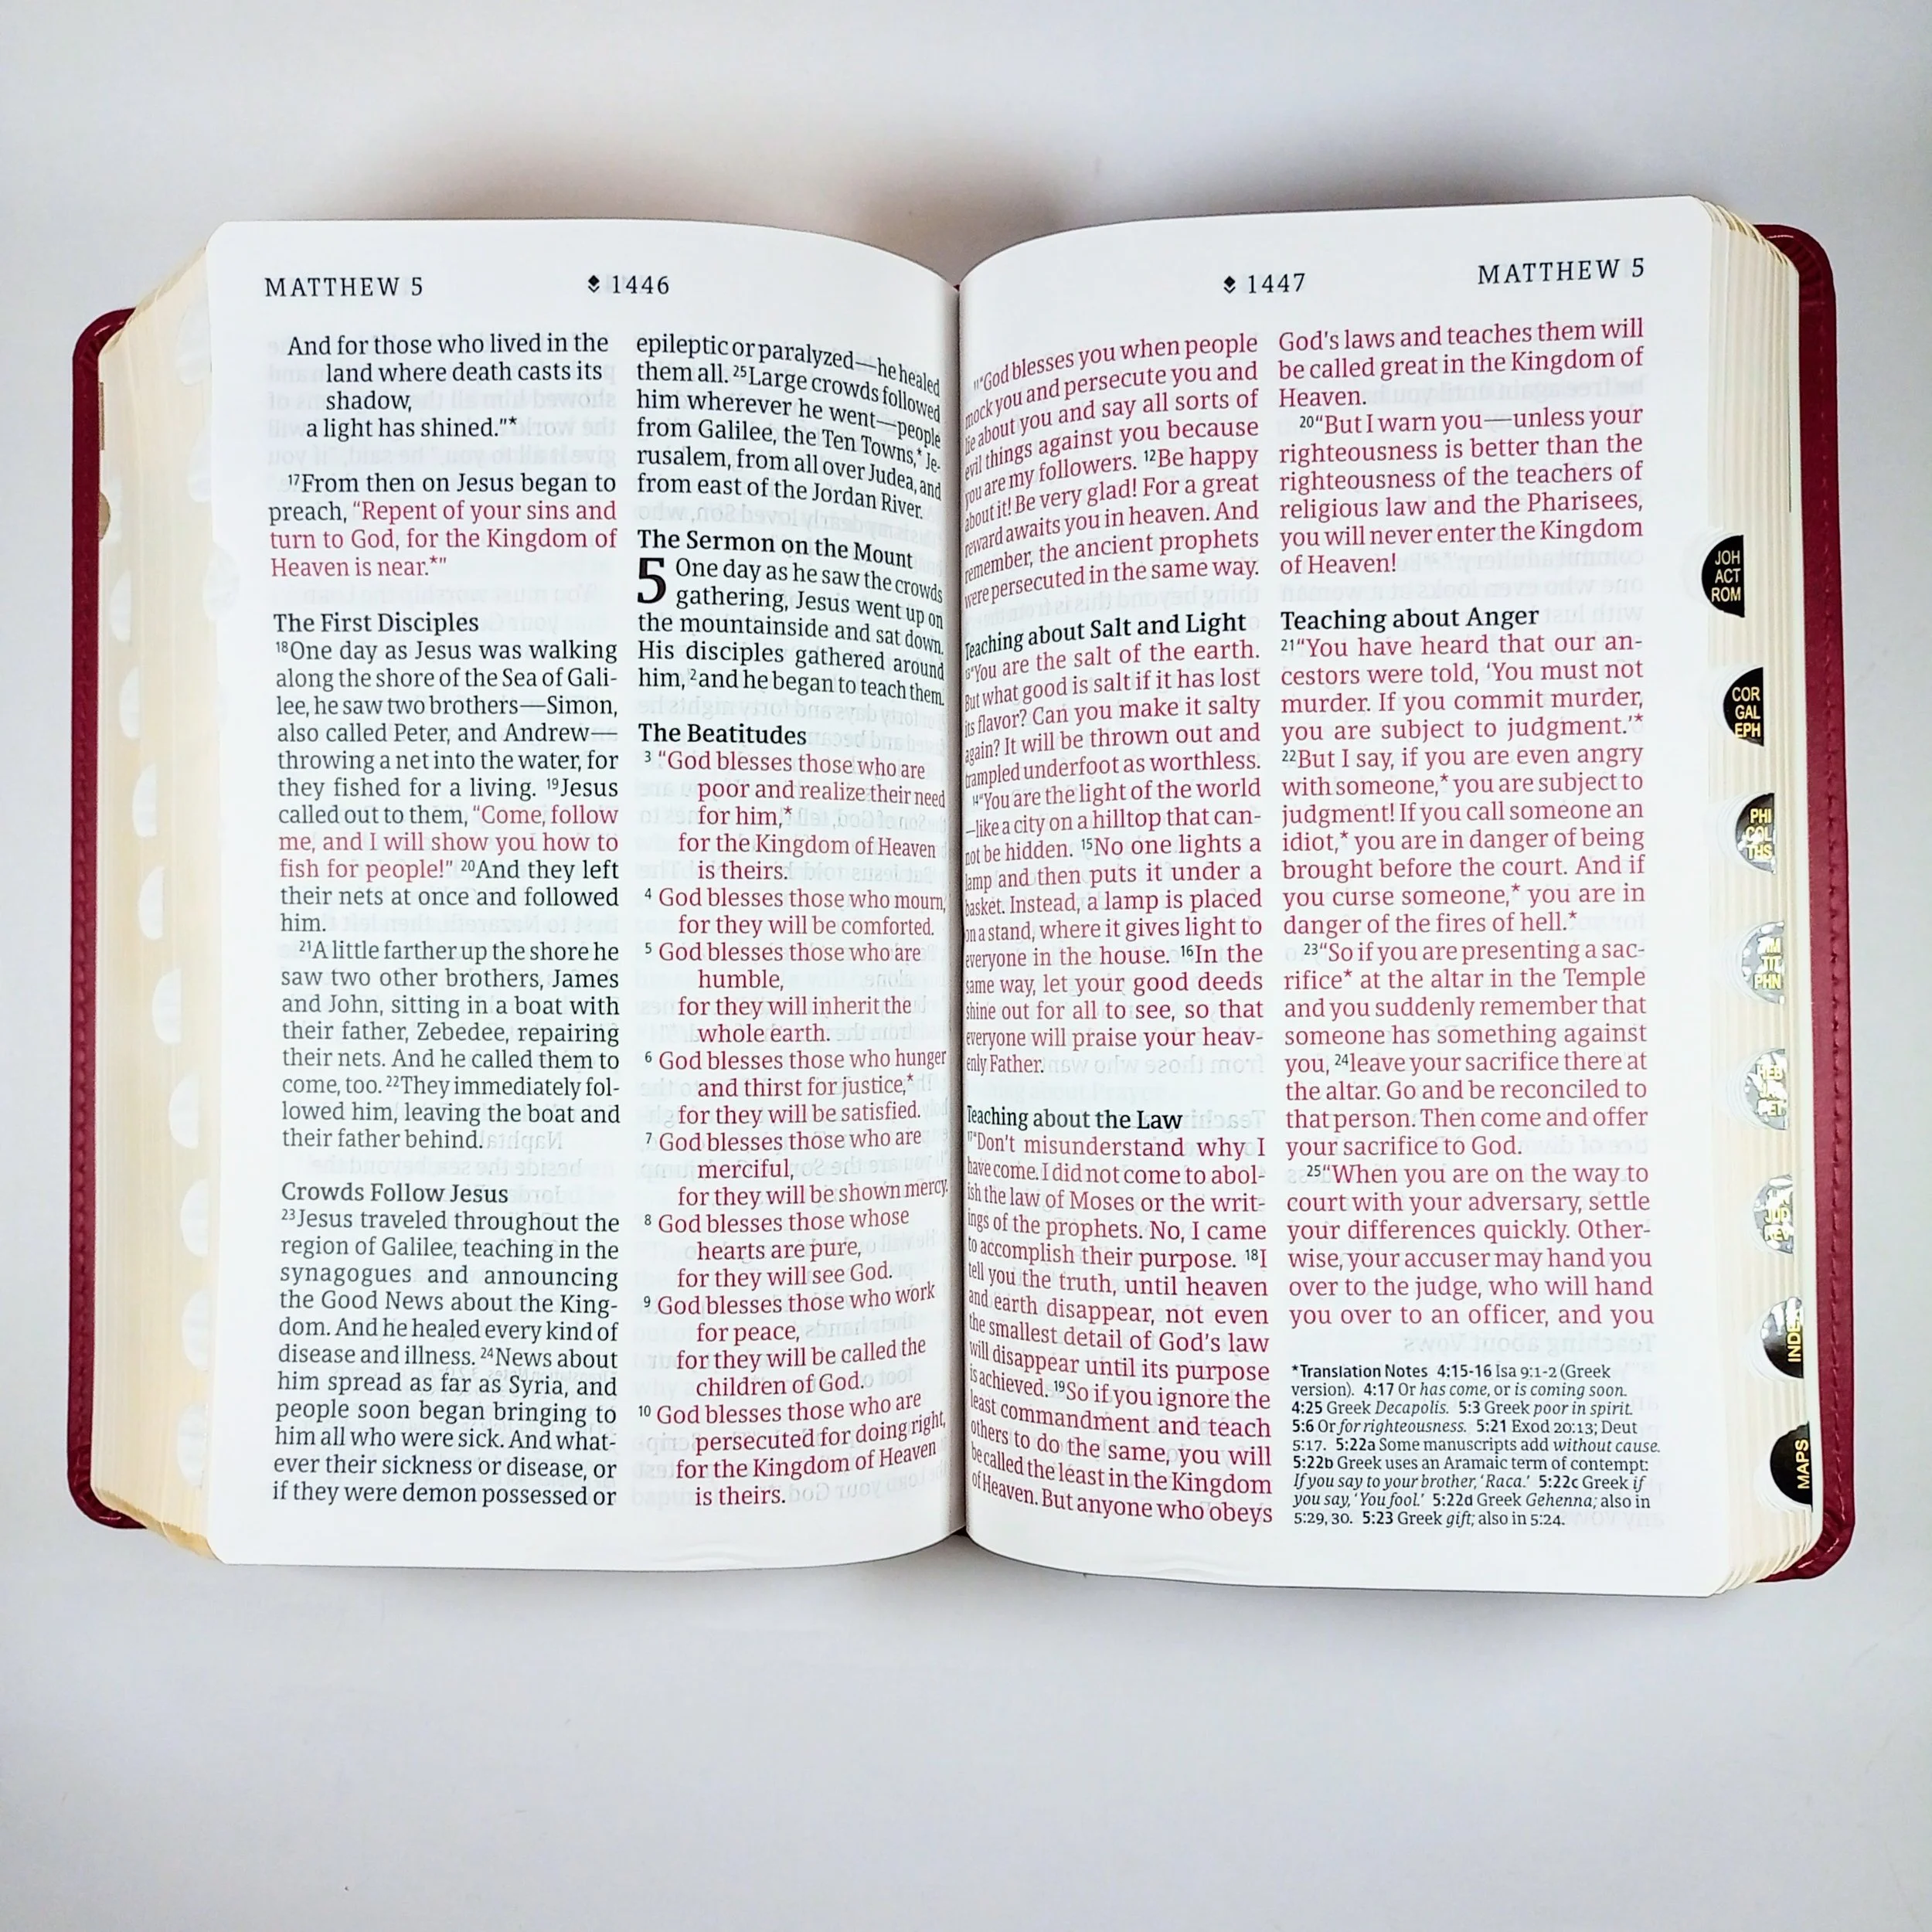 MATTHEW 5
1446
And for those who lived in the
land where death casts its
shadow,
a light has shined."*
17From then on Jesus began to
preach, “Repent of your sins and
turn to God, for the Kingdom of
Heaven is near.*”
The First Disciples
18One day as Jesus was walking
along the shore of the Sea of Gali-
lee, he saw two brothers—Simon,
also called Peter, and Andrew—
throwing a net into the water, for
they fished for a living. 19Jesus
called out to them, “Come, follow
me, and I will show you how to
fish for people!” 20And they left
their nets at once and followed
him.
21A little farther up the shore he
saw two other brothers, James
and John, sitting in a boat with
their father, Zebedee, repairing
their nets. And he called them to
come, too. 22They immediately fol-
lowed him, leaving the boat and
their father behind.
Crowds Follow Jesus
23Jesus traveled throughout the
region of Galilee, teaching in the
synagogues and announcing
the Good News about the King-
dom. And he healed every kind of
disease and illness. 24News about
him spread as far as Syria, and
people soon began bringing to
him all who were sick. And what-
ever their sickness or disease, or
if they were demon possessed or
epileptic or paralyzed—he healed
them all. 25Large crowds followed
him wherever he went—people
from Galilee, the Ten Towns,* Je-
rusalem, from all over Judea, and
from east of the Jordan River.
The Sermon on the Mount
5 One day as he saw the crowds
gathering, Jesus went up on
the mountainside and sat down.
His disciples gathered around
him, 2and he began to teach them.
The Beatitudes
3 “God blesses those who are
poor and realize their need
for him,*
for the Kingdom of Heaven
is theirs.
4 God blesses those who mourn,
for they will be comforted.
5 God blesses those who are
humble,
for they will inherit the
whole earth.
6 God blesses those who hunger
and thirst for justice,*
for they will be satisfied.
7 God blesses those who are
merciful,
for they will be shown mercy.
8 God blesses those whose
hearts are pure,
for they will see God.
9 God blesses those who work
for peace,
for they will be called the
children of God.
10 God blesses those who are
persecuted for doing right,
for the Kingdom of Heaven
is theirs.
1447
MATTHEW 5
11“God blesses you when people
mock you and persecute you and
lie about you and say all sorts of
evil things against you because
you are my followers. 12Be happy
about it! Be very glad! For a great
reward awaits you in heaven. And
remember, the ancient prophets
were persecuted in the same way.
Teaching about Salt and Light
13“You are the salt of the earth.
But what good is salt if it has lost
its flavor? Can you make it salty
again? It will be thrown out and
trampled underfoot as worthless.
14“You are the light of the world
—like a city on a hilltop that can-
not be hidden. 15No one lights a
lamp and then puts it under a
basket. Instead, a lamp is placed
on a stand, where it gives light to
everyone in the house. 16In the
same way, let your good deeds
shine out for all to see, so that
everyone will praise your heav-
enly Father.
Teaching about the Law
17“Don't misunderstand why I
have come. I did not come to abol-
ish the law of Moses or the writ-
ings of the prophets. No, I came
to accomplish their purpose. 18I
tell you the truth, until heaven
and earth disappear, not even
the smallest detail of God's law
will disappear until its purpose
is achieved. 19So if you ignore the
least commandment and teach
others to do the same, you will
be called the least in the Kingdom
of Heaven. But anyone who obeys
God's laws and teaches them will
be called great in the Kingdom of
Heaven.
20“But I warn you—unless your
righteousness is better than the
righteousness of the teachers of
religious law and the Pharisees,
you will never enter the Kingdom
of Heaven!
Teaching about Anger
21“You have heard that our an-
cestors were told, ‘You must not
murder. If you commit murder,
you are subject to judgment.’*
22But I say, if you are even angry
with someone,* you are subject to
judgment! If you call someone an
idiot,* you are in danger of being
brought before the court. And if
you curse someone,* you are in
danger of the fires of hell.*
23“So if you are presenting a sac-
rifice* at the altar in the Temple
and you suddenly remember that
someone has something against
you, 24leave your sacrifice there at
the altar. Go and be reconciled to
that person. Then come and offer
your sacrifice to God.
25“When you are on the way to
court with your adversary, settle
your differences quickly. Other-
wise, your accuser may hand you
over to the judge, who will hand
you over to an officer, and you
*Translation Notes 4:15-16 Isa 9:1-2 (Greek
version). 4:17 Or has come, or is coming soon.
4:25 Greek Decapolis. 5:3 Greek poor in spirit.
5:6 Or for righteousness. 5:21 Exod 20:13; Deut
5:17. 5:22a Some manuscripts add without cause.
5:22b Greek uses an Aramaic term of contempt:
If you say to your brother, ‘Raca.’ 5:22c Greek if
you say, ‘You fool.’ 5:22d Greek Gehenna; also in
5:29, 30. 5:23 Greek gift; also in 5:24.
JOH
ACT
ROM
COR
GAL
EPH
PHI
COL
THS
TIT
PHN
HEB
PET
JUD
MAPS